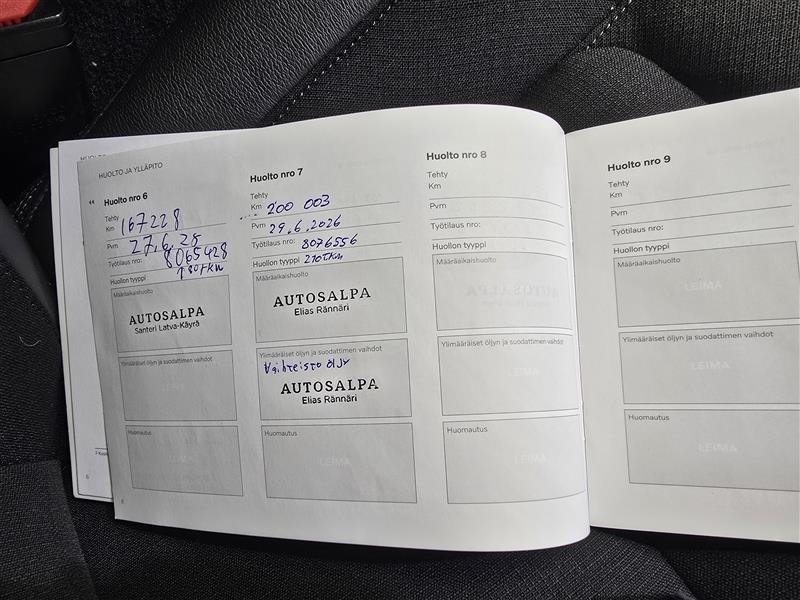 HUOLTO JA YLLÄPITO
Huolto nro 6
Tehty
Km 167228
Pvm 27.6.25
Työtilaus nro: 8065428
Huollon tyyppi 180TKM
Määräaikaishuolto
AUTOSALPA
Santeri Latva-Käyrä
Ylimääräiset öljyn ja suodattimen vaihdot
Huomautus
8
Huolto nro 7
Tehty
Km 200 003
Pvm 29.6.2026
Työtilaus nro: 8076556
Huollon tyyppi 210TKM
Määräaikaishuolto
AUTOSALPA
Elias Rännäri
Ylimääräiset öljyn ja suodattimen vaihdot
Vaihteisto öljy
AUTOSALPA
Elias Rännäri
Huomautus
LEIMA
Huolto nro 8
Tehty
Km
Pvm
Työtilaus nro:
Huollon tyyppi
Määräaikaishuolto
Ylimääräiset öljyn ja suodattimen vaihdot
LEIMA
Huomautus
LEIMA
Huolto nro 9
Tehty
Km
Pvm
Työtilaus nro:
Huollon tyyppi
Määräaikaishuolto
LEIMA
Ylimääräiset öljyn ja suodattimen vaihdot
LEIMA
Huomautus
LEIMA